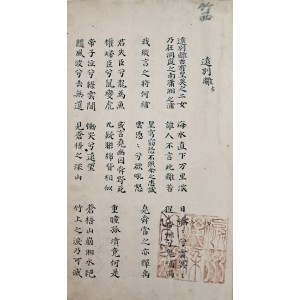 遠別離
遠別離古有皇英之二女
乃在洞庭之南瀟湘之浦
海水直下万里深
誰人不言此離苦
日慘 兮雲冥
猩 啼 兮鬼嘯雨
我縱言之將何補
皇穹竊恐不照余之忠誠
雲憑 兮欲吼怒
堯舜當之亦禪禹
君失臣兮龍為魚
權歸臣兮鼠變虎
或言堯幽囚舜野死
九疑聯綿皆相似
重瞳孤墳竟何是
帝子泣兮綠雲間
隨風波兮去無還
慟哭兮遠望
見蒼梧之深山
蒼梧山崩湘水絕
竹上之淚乃可滅